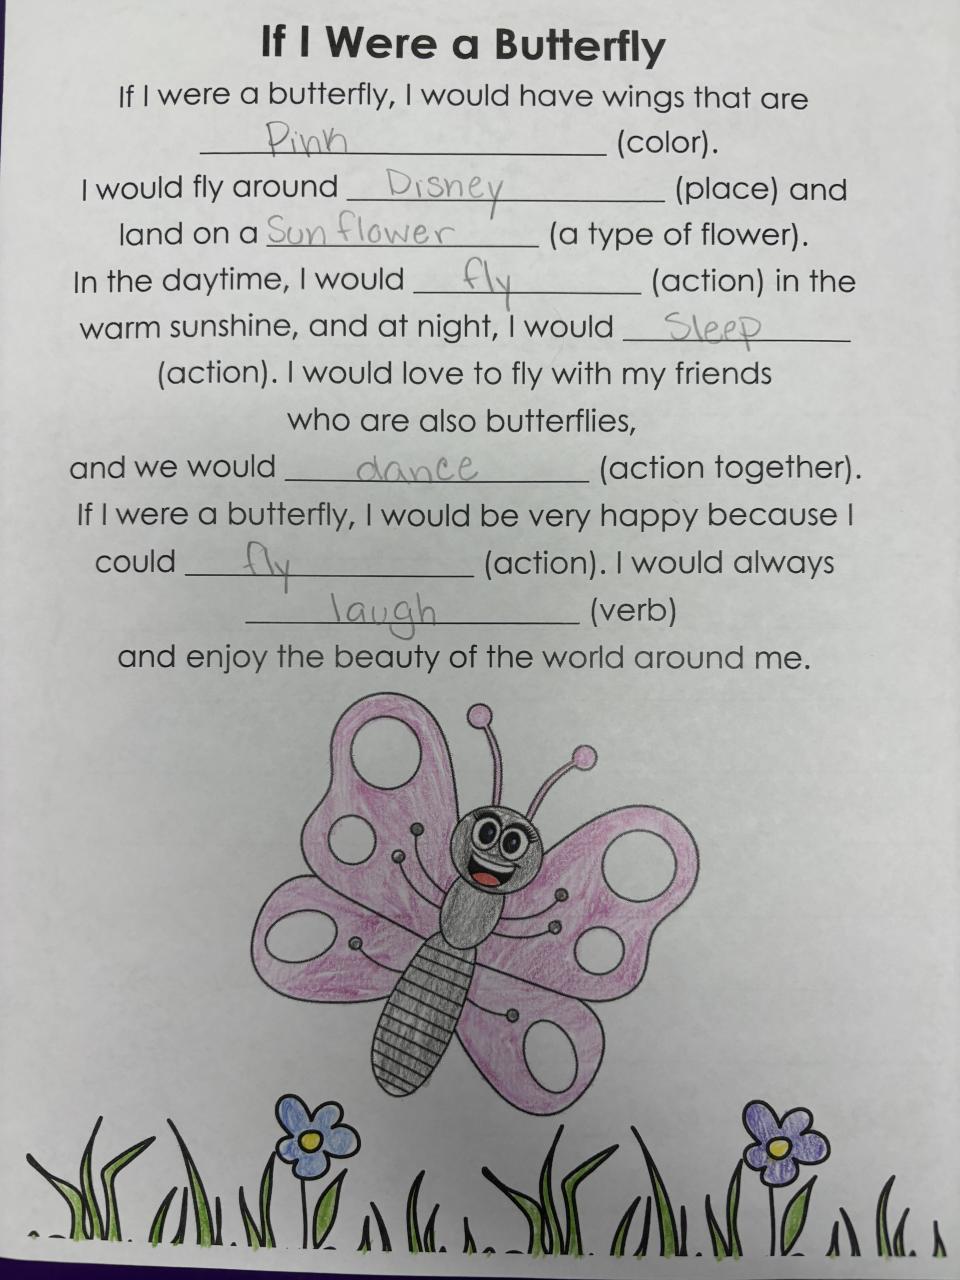 If I Were a Butterfly
If I were a butterfly, I would have wings that are
Pink (color).
I would fly around Disney (place) and
land on a Sunflower (a type of flower).
In the daytime, I would fly (action) in the
warm sunshine, and at night, I would Sleep
(action). I would love to fly with my friends
who are also butterflies,
and we would dance (action together).
If I were a butterfly, I would be very happy because I
could fly (action). I would always
laugh (verb)
and enjoy the beauty of the world around me.